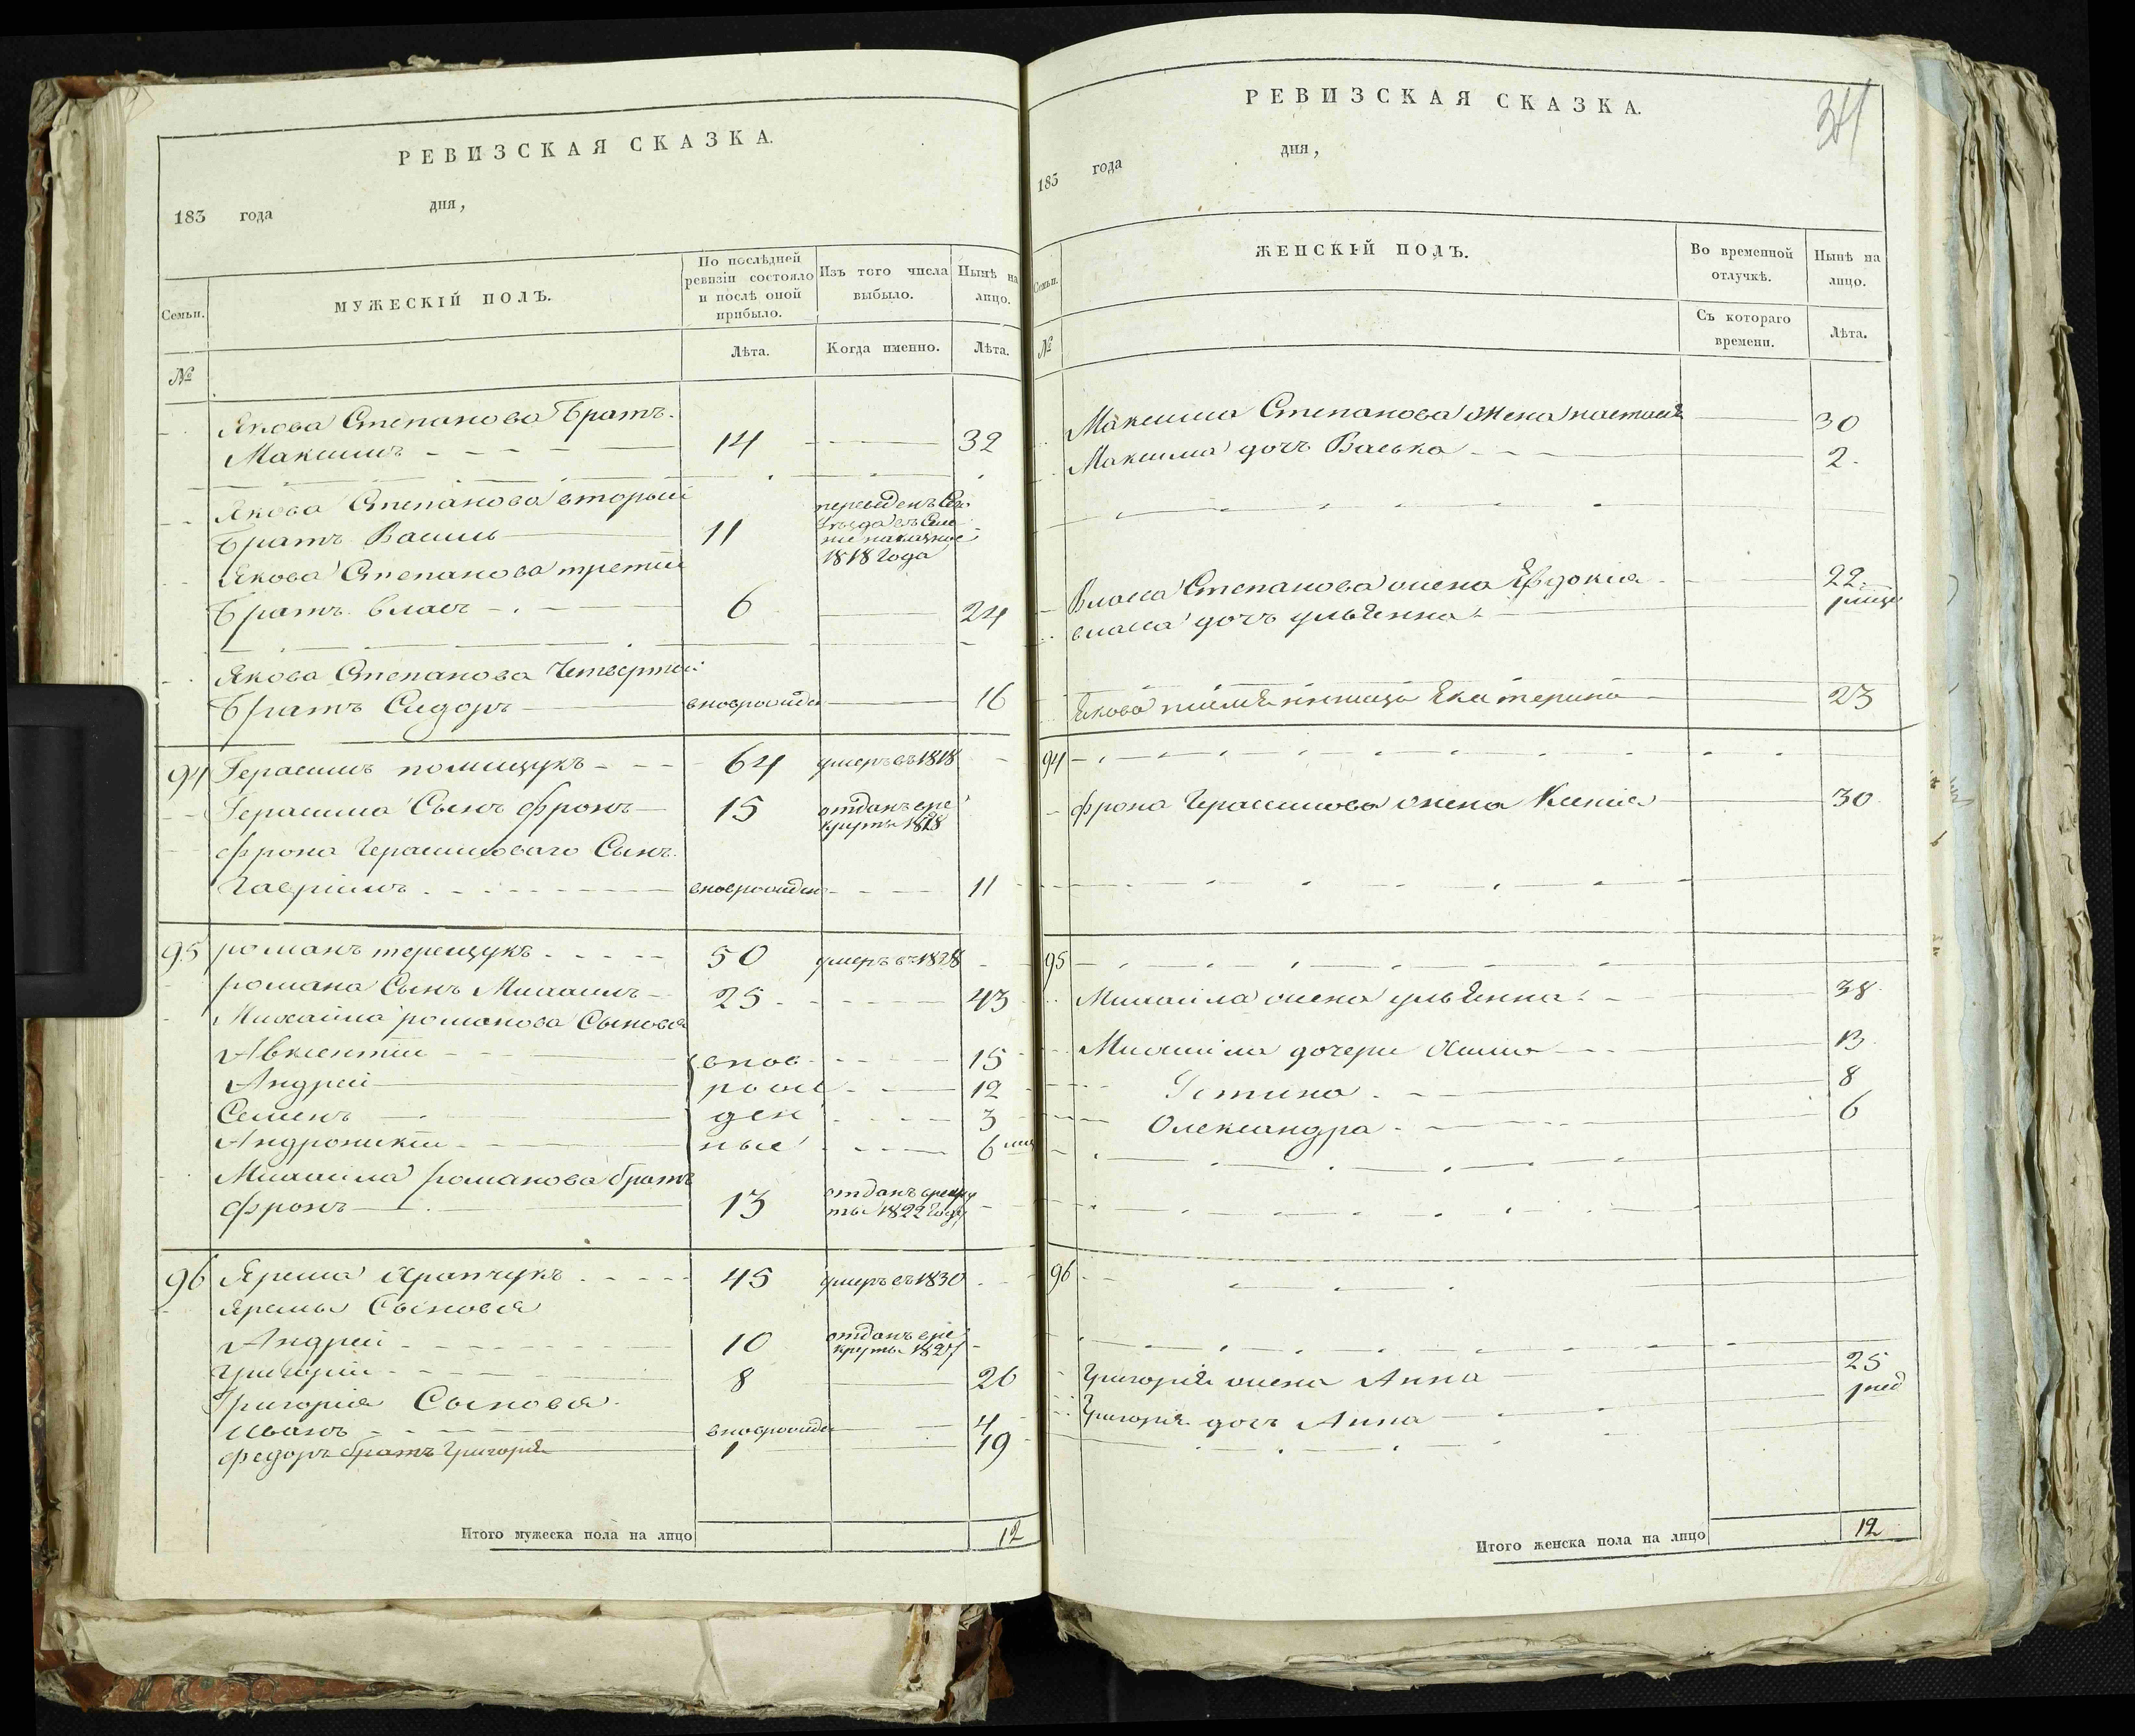 РЕВИЗСКАЯ СКАЗКА.
183 года дня,
Семьи. МУЖЕСКІЙ ПОЛЪ. По послѣдней ревизіи состояло и послѣ оной прибыло. Изъ того числа выбыло. Нынѣ на лицо.
№ Лѣта. Когда именно. Лѣта.
Якова Степанова братъ.
Максимъ 14 32
Якова Степанова вторый
братъ Василь 11 1818 года
Якова Степанова третій
братъ Власъ 6 24
Якова Степанова Четвертый
братъ Сидоръ вновърожден 16
94 Герасимъ полищукъ 64 умеръ въ 1818
Герасима Сынъ фронъ 15 отданъ вре
круты 1828
фрона Герасимоваго Сынъ
Гавріилъ вновърожден 11
95 романъ терещукъ 50 умеръ въ 1828
романа Сынъ Михаилъ 25 43
Михаила романова Сыновя
Авксентій внов 15
Андрей рож 12
Семенъ ден 3
Андроникій ные 6 мц
Михаила романова братъ
фронъ 13 отданъ врекру
ты 1822 году
96 Ярема Храпчукъ 45 умеръ въ 1830
Яремы Сыновя
Андрей 10 отданъ вре
круты 1827
Григорій 8 26
Григорія Сыновя
Иванъ вновърожде 4
федоръ братъ Григорія 1 19
Итого мужеска пола на лицо 12
РЕВИЗСКАЯ СКАЗКА.
183 года дня,
Семьи. ЖЕНСКІЙ ПОЛЪ. Во временной отлучкѣ. Нынѣ на лицо.
№ Съ котораго времени. Лѣта.
Максима Степанова жена настасія 30
Максима дочъ Васька 2
Власа Степанова жена Евдокія 22
власа дочъ ульянна
Якова племянница Екатерина 23
94
фрона Герасимова жена Ксенія 30
95
Михаила жена ульянна 38
Михаила дочери 13
Устина 8
Олександра 6
96
Григорія жена Анна 25
Григорія дочъ Анна
Итого женска пола на лицо 12